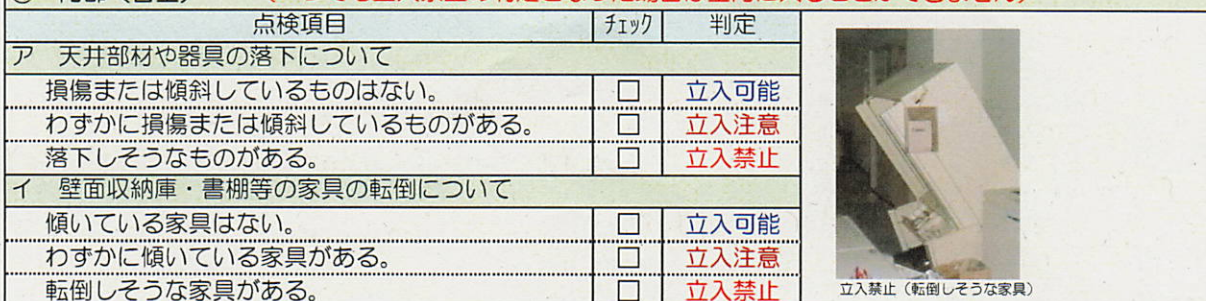 点検項目 ﾁｪｯｸ 判定
ア 天井部材や器具の落下について
損傷または傾斜しているものはない。 □ 立入可能
わずかに損傷または傾斜しているものがある。 □ 立入注意
落下しそうなものがある。 □ 立入禁止
イ 壁面収納庫・書棚等の家具の転倒について
傾いている家具はない。 □ 立入可能
わずかに傾いている家具がある。 □ 立入注意
転倒しそうな家具がある。 □ 立入禁止
立入禁止（転倒しそうな家具）